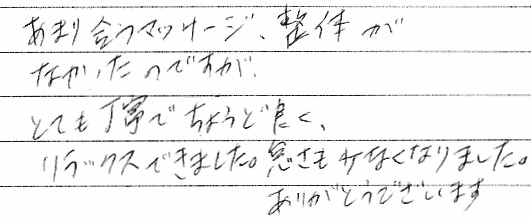 あまり合うマッサージ、整体が
なかったのですが、
とても丁寧でちょうど良く、
リラックスできました。 なくなりました。
ありがとうございます